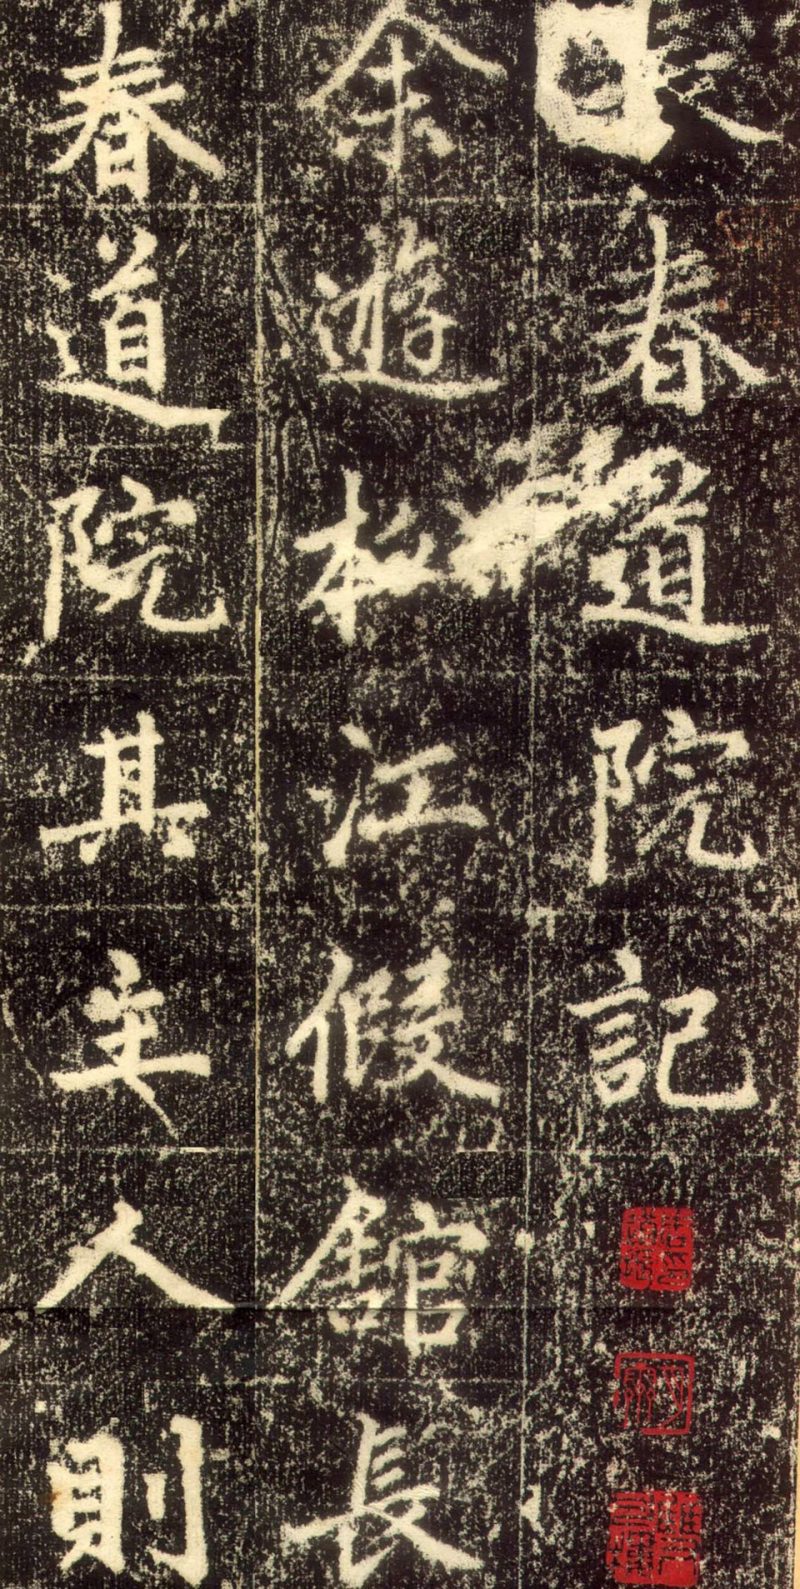 長春道院記
余遊松江假館長
春道院其主人則